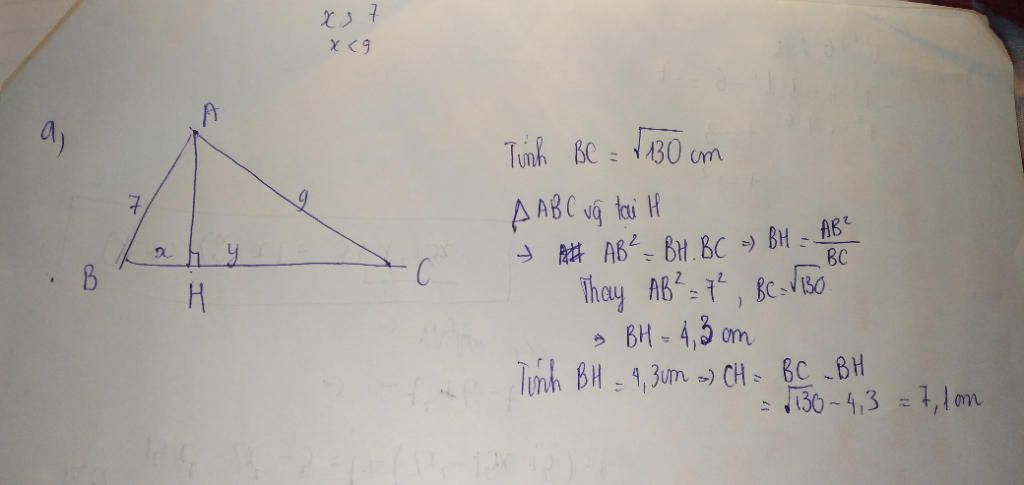 x > 7
x < 9
a,
A
7
9
x
y
B
H
C
Tính BC = √130 cm
△ABC vg tại H
→ AB² = BH . BC => BH = AB²/BC
Thay AB² = 7², BC = √130
=> BH = 4,3 cm
Tính BH = 4,3cm => CH = BC - BH
= √130 - 4,3 = 7,1cm